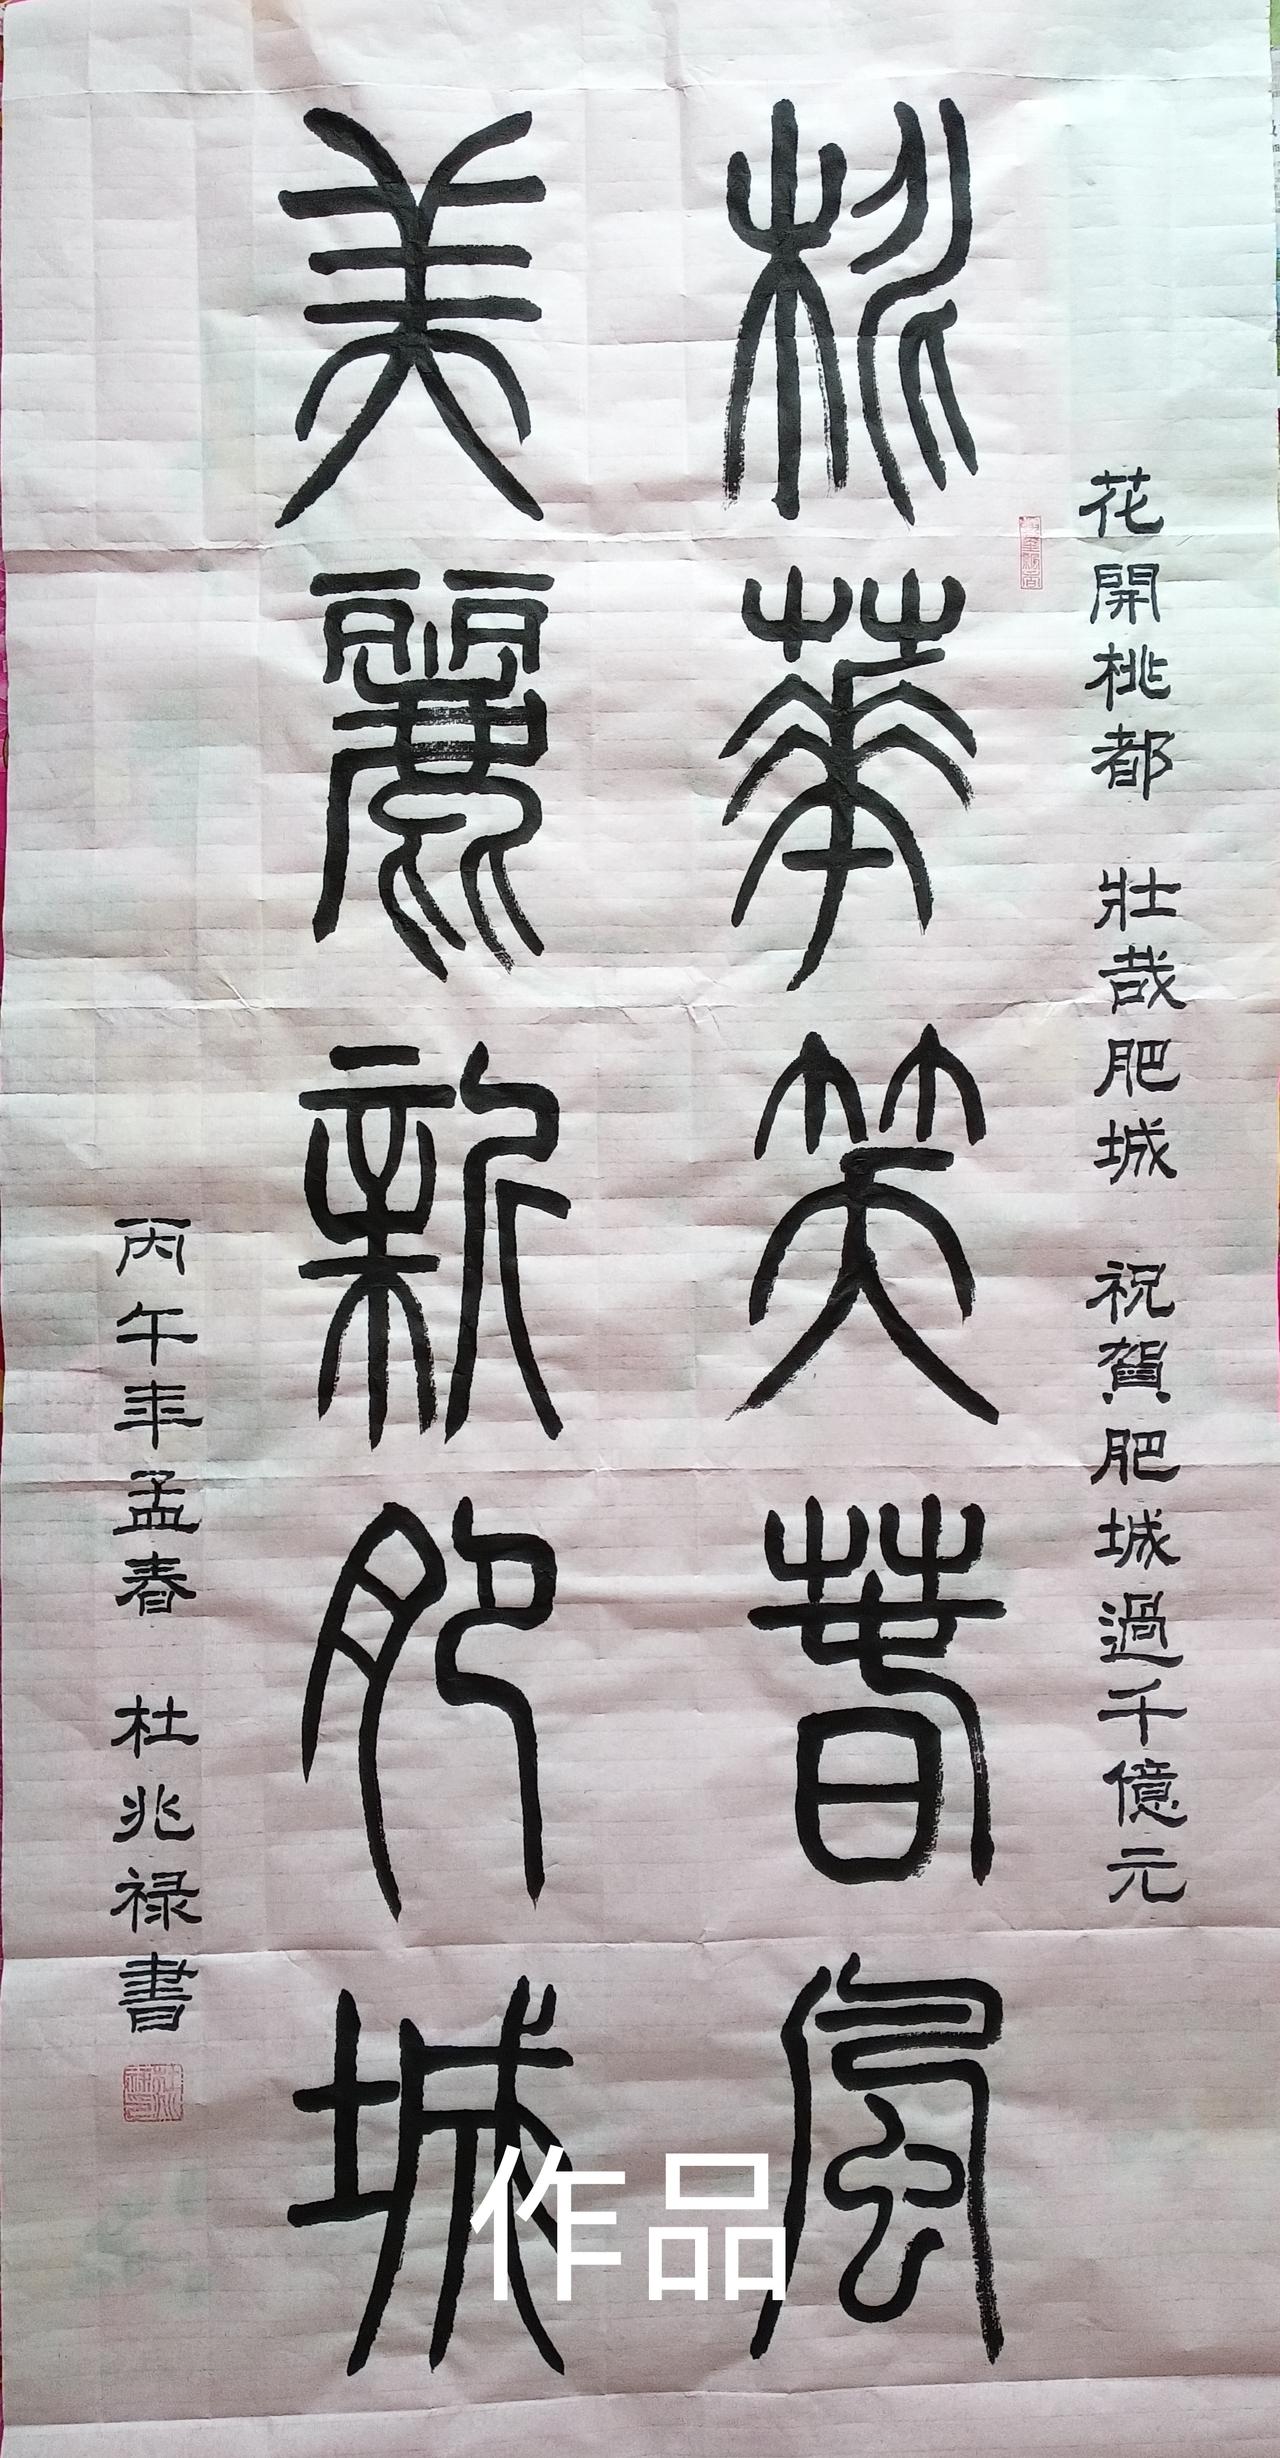 花開桃都 壯哉肥城 祝賀肥城過千億元
桃華笑春風
美麗新肥城
丙午年孟春 杜兆禄書
作品